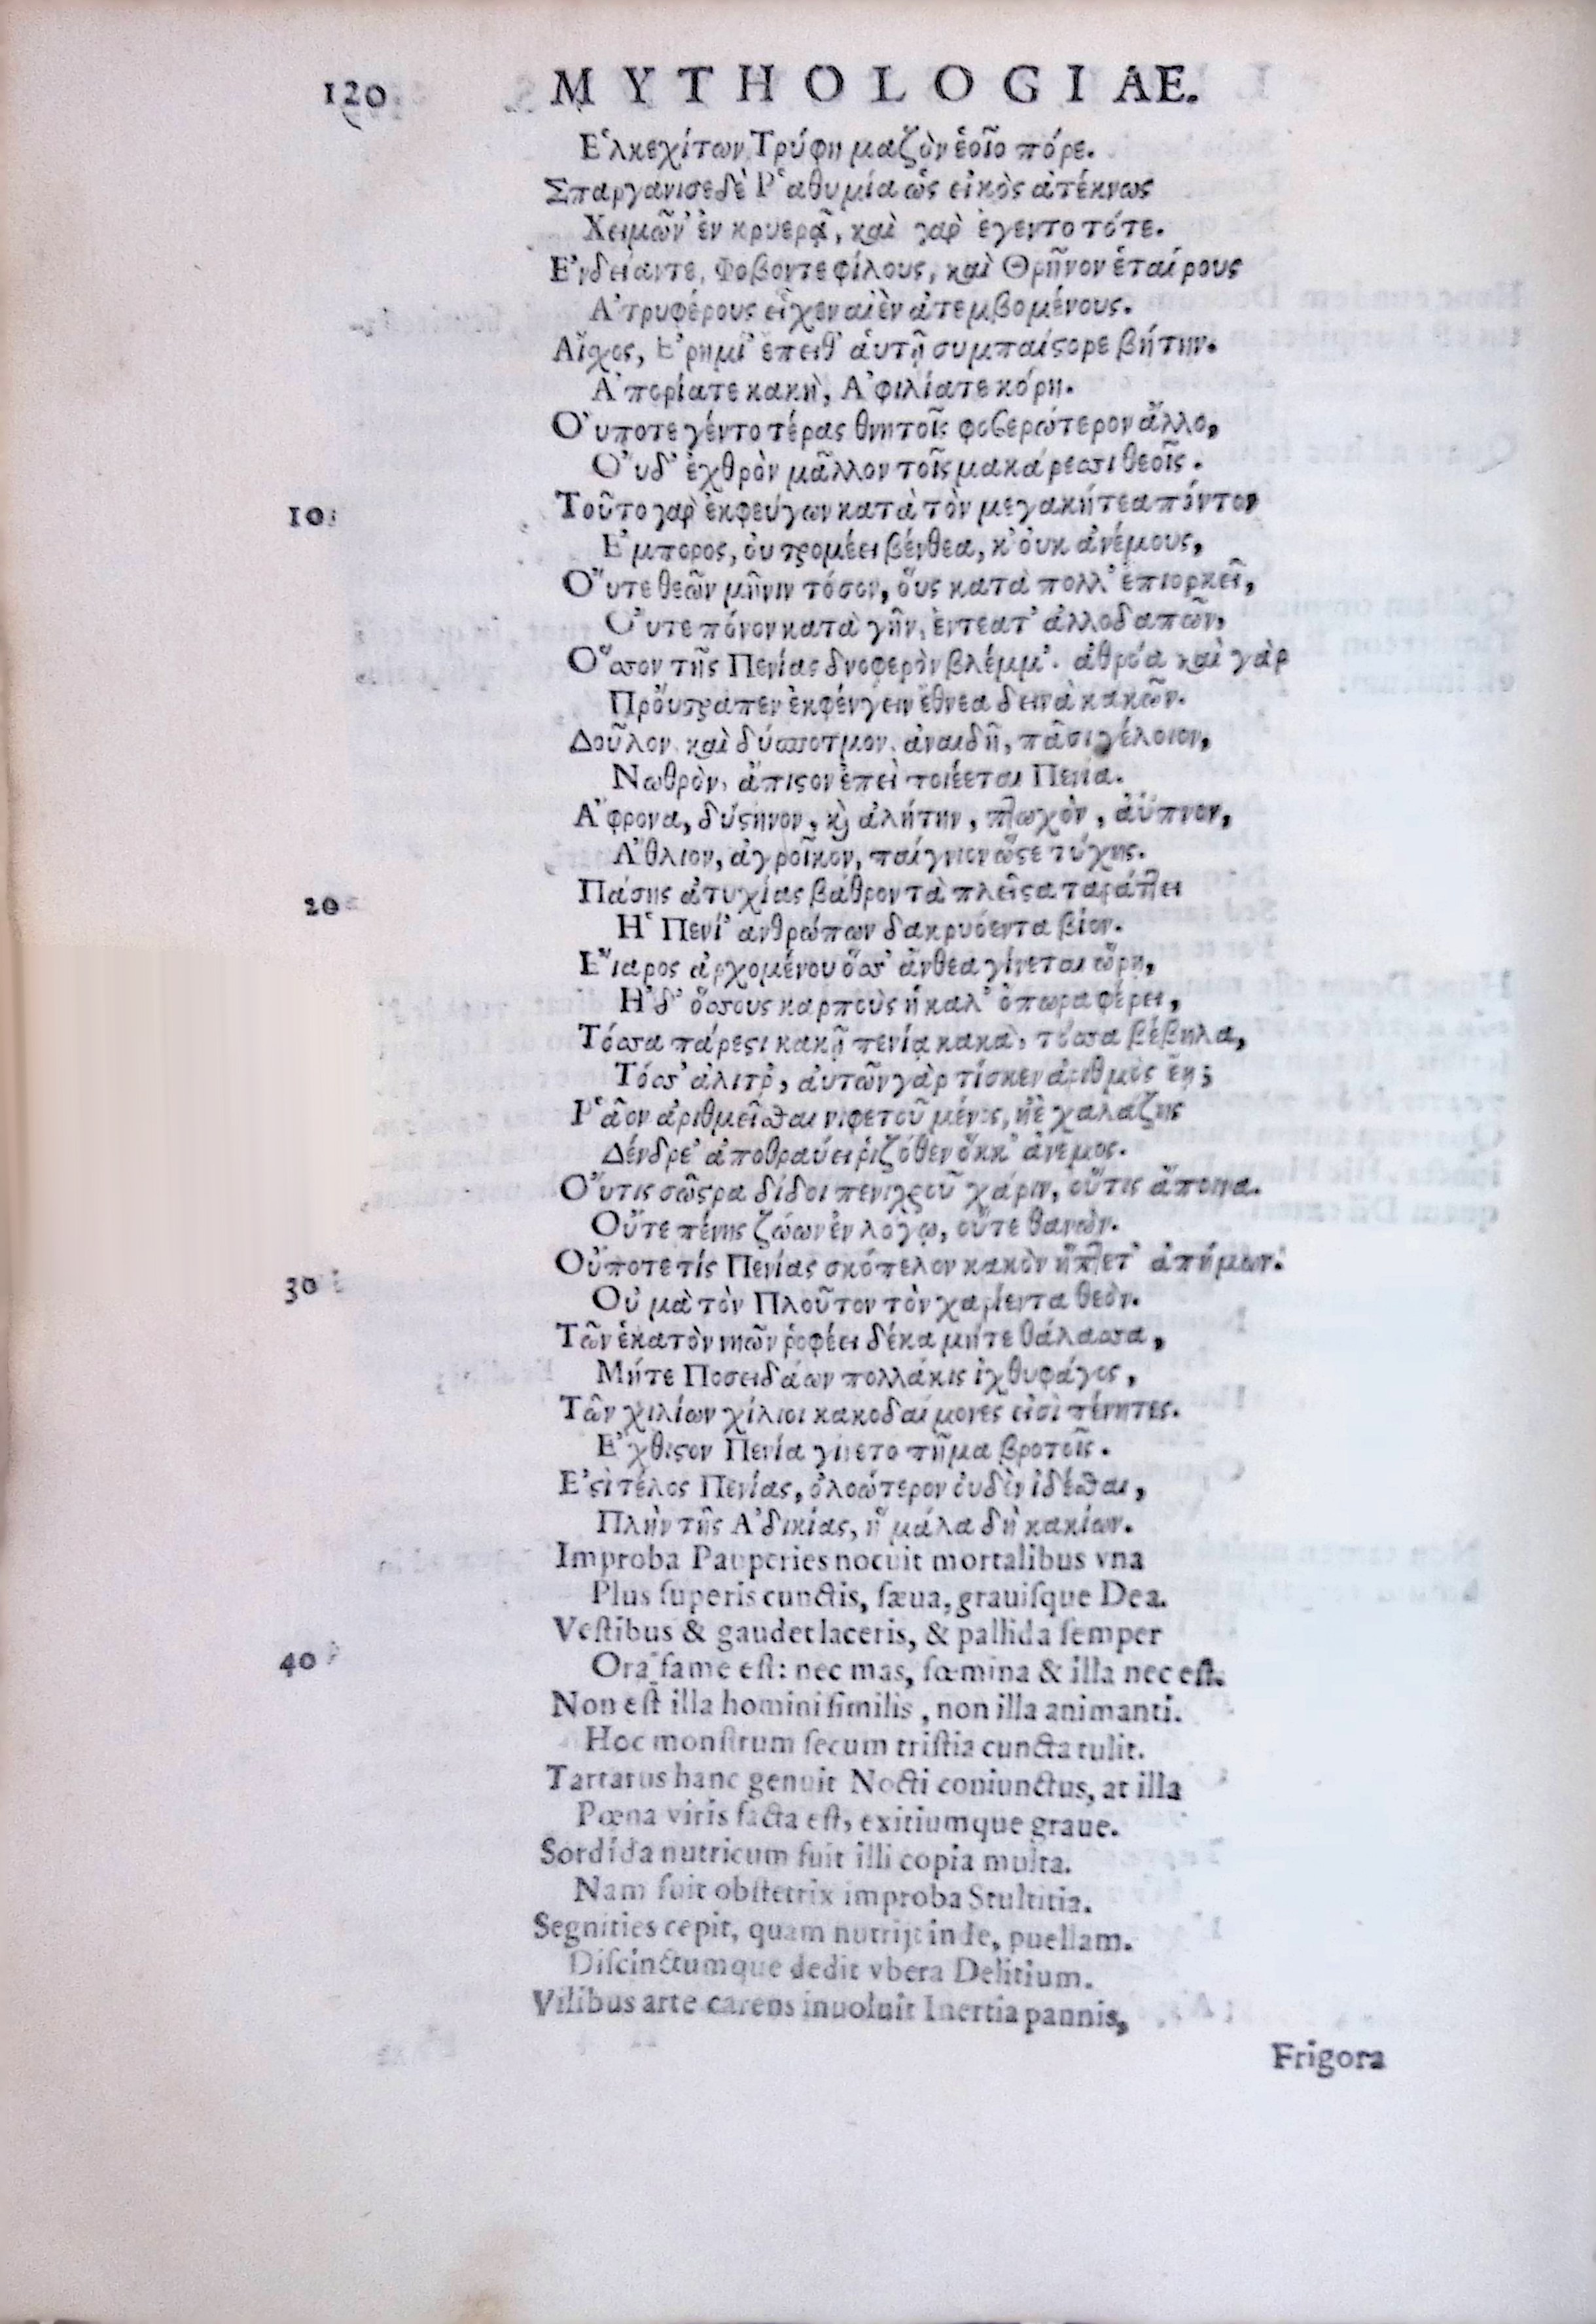 120 MYTHOLOGIAE.
Ε῾λκεχίτων Τρύφη μαζὸν ἑοῖο πόρε.
Σπαργάνισεδὲ Ρ῾αθυμία ὡς εἰκὸς ἀτέκνως
Χειμῶν' ἐν κρυερᾷ, καὶ γαρ ἐγεντο τότε.
Ε᾿νδείαντε, Φοβοντε φίλους, καὶ Θρῆνον ἑταίρους
Α᾿τρυφέρους εἶχεν αιὲν ἀτεμβομένους.
Αἴχος, Ε᾿ρημί' ἔπειθ' ἀυτῇ συμπαίςορε βήτην.
Α᾿πορίατε κακὴ, Α᾿φιλίατε κόρη.
Ο᾿υποτε γέντο τέρας θνητοῖς φοβερώτερον ἄλλο,
Ο᾿υδ' ἐχθρὸν μᾶλλον τοῖς μακάρεσσι θεοῖς.
10 Τοῦτο γαρ ἐκφεύγων κατὰ τὸν μεγακήτεα πόντον
Ε᾿μπορος, ὀυ τρομέει βένθεα, κ' ὀυκ ἀνέμους,
Ο῎υτε θεῶν μῆνιν τόσον, ὅυς κατὰ πολλ' ἐπιορκεῖ,
Ο῎υτε πόνον κατὰ γῆν, ἐντεατ' ἀλλοδαπῶν,
Ο῞σσον τῆς Πενίας δνοφερὸν βλέμμ'. ἀθρόα καὶ γὰρ
Πρὄυτραπεν ἐκφένγειν ἔθνεα δεινὰ κακῶν.
Δοῦλον καὶ δύσποτμον, ἀναιδῆ, πᾶσι γέλοιον,
Νωθρὸν, ἄπιςον ἐπεὶ ποιέεται Πενία.
Α῎φρονα, δύςηνον, κὶ ἀλήτην, πτωχὸν, ἀϋπνον,
Α῎θλιον, ἀγροῖκον, παίγνιον ὥςε τύχης.
20 Πάσης ἀτυχίας βάθρον τὰ πλεῖςα ταράττει
Η῾ Πενί' ανθρώπων δακρυόεντα βίον.
Ε῎ιαρος ἀρχομένου ὅσσ' ἄνθεα γίνεται ὥρη,
Η᾿δ' ὅσσους καρποὺς ἡ καλ' ὀπωρα φέρει,
Τόσσα πάρεςι κακῇ πενίᾳ κακὰ, τόσσα βέβηλα,
Τόσσ' ἀλιτρ, ἀυτῶν γὰρ τίσκεν ἀριθμὸς ἔη;
Ρ῾ᾶον ἀριθμεῖσθαι νιφετοῦ μένος, ἠὲ χαλάζης
Δένδρε' ἀποθραύει ῥιζόθεν ὅκκ' ἀνεμος.
Ο῎υτις σῶςρα δίδοι πενιχροῦ χάριν, οὔτις ἄποινα.
Οὔτε πένης ζώων ἐν λόγῳ, οὔτε θανών.
30 Οὔποτε τίς Πενίας σκόπελον κακὸν ἤπτετ' ἀπήμων.
Οὐ μὰ τὸν Πλοῦτον τὸν χαρίεντα θεὸν.
Τῶν ἑκατὸν νηῶν ῥοφέει δέκα μήτε θάλασσα,
Μήτε Ποσειδάων πολλάκις ἰχθυφάγος,
Τῶν χιλίων χίλιοι κακοδαίμονες εἰσὶ πένητες.
Ε᾿χθιςον Πενία γίνετο πῆμα βροτοῖς.
Ε᾿ςὶ τέλος Πενίας, ὀλοώτερον ὀυδὲν ἰδέσθαι,
Πλὴν τῆς Α᾿δικίας, ἢ μάλα δὴ κακίων.
Improba Pauperies nocuit mortalibus vna
Plus ſuperis cunctis, ſæua, grauiſque Dea.
Veſtibus & gaudet laceris, & pallida ſemper
40 Ora fame eſt: nec mas, fœmina & illa nec eſt.
Non eſt illa homini ſimilis, non illa animanti.
Hoc monſtrum ſecum triſtia cuncta tulit.
Tartarus hanc genuit Nocti coniunctus, at illa
Pœna viris facta eſt, exitiumque graue.
Sordida nutricum fuit illi copia multa.
Nam fuit obſtetrix improba Stultitia.
Segnities cepit, quam nutrijt inde, puellam.
Diſcinctumque dedit vbera Delitium.
Vilibus arte carens inuoluit Inertia pannis,
Frigora